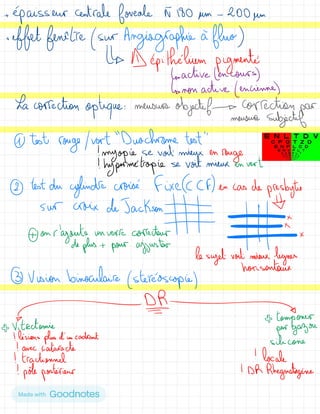 . épaisseur centrale fovéale N 180 µm - 200 µm
. effet fenêtre (sur Angiographie à fluo)
épithélium pigmenté
active (encours)
non active (encienne)
La correction optique: mesures objectif → correction par
mesure Subjectif
① test rouge / vert "Duochrome test"
! myopie se voit mieux en rouge
! hypermétropie se voit mieux en vert
E N L T D V
② test du cylindre croisé Fixe (CCF) en cas de presbytie
sur croix de Jackson
⊕ on r'ajoute un verre correcteur
de plus + pour ajuster
le sujet voit mieux lignes
horizontaux
③ Vision binoculaire (stéréoscopie)
DR
Vitectomie
! lésions plus d'un cadrant
! avec cataracte
! tractionnel
! pôle postérieur
tamponner
par gaz ou
silicone
! locale
! DR Rhegmatogène
Made with Goodnotes